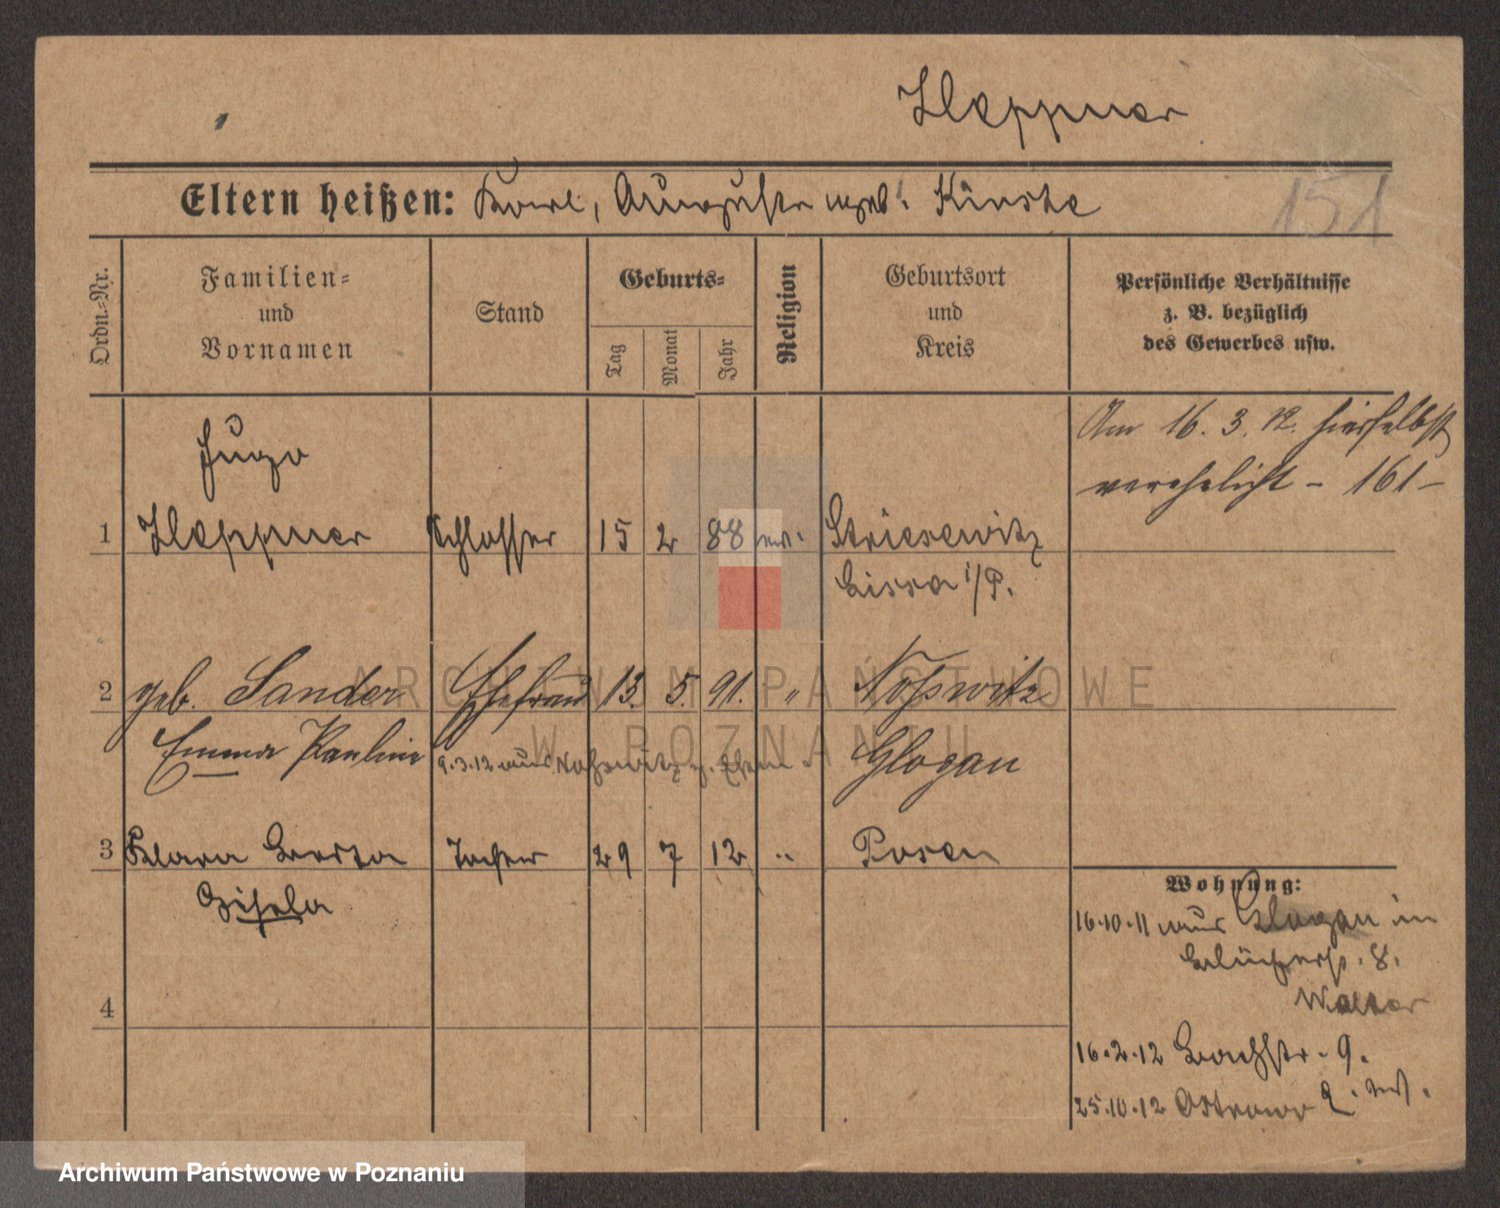 Kleppner
Eltern heißen: Karl, Auguste geb. Kirste
151
Ordn.-Nr.
Familien-
und
Vornamen
Stand
Geburts-
Tag
Monat
Jahr
Religion
Geburtsort
und
Kreis
Persönliche Verhältnisse
z. B. bezüglich
des Gewerbes usw.
Am 16. 3. 12. hierselbst
verehelicht - 161 -
Hugo
1 Kleppner Schlosser 15 2 88 ev. Striesewitz
Lissa i/P.
2 geb. Sander Ehefrau 13. 5. 91. " Noßwitz
Emma Pauline 9.3.12 aus Noßwitz z. Ehem. Glogau
3 Klara Berta Tochter 29 7 12 " Posen
Gisela
4
Wohnung:
16.10.11 aus Glogau in
Blücherstr. 8.
Walter
16.2.12 Bachstr. 9.
25.10.12 Ostrowo
ARCHIWUM PAŃSTWOWE
W POZNANIU
Archiwum Państwowe w Poznaniu